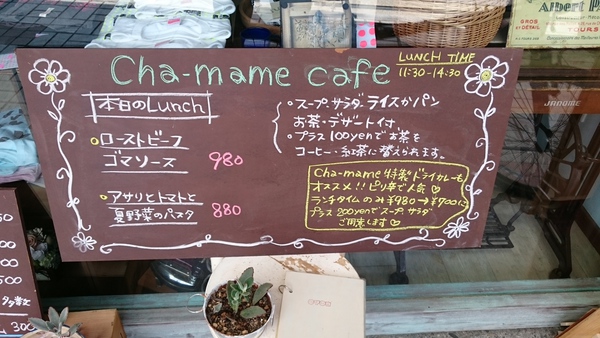 Cha-mame cafe
LUNCH TIME
11:30-14:30
本日のLunch
ローストビーフ
ゴマソース 980
アサリとトマトと
夏野菜のパスタ 880
・スープ、サラダ、ライスかパン
お茶・デザート付。
・プラス100yenでお茶を
コーヒー・紅茶に替えられます。
Cha-mame特製ドライカレーも
オススメ!!ピリ辛で人気♡
ランチタイムのみ¥980→¥700に
プラス200yenでスープ、サラダ
ご用意します♡
Albert P
GROS
DÉTAIL
TOURS
JANOME
300